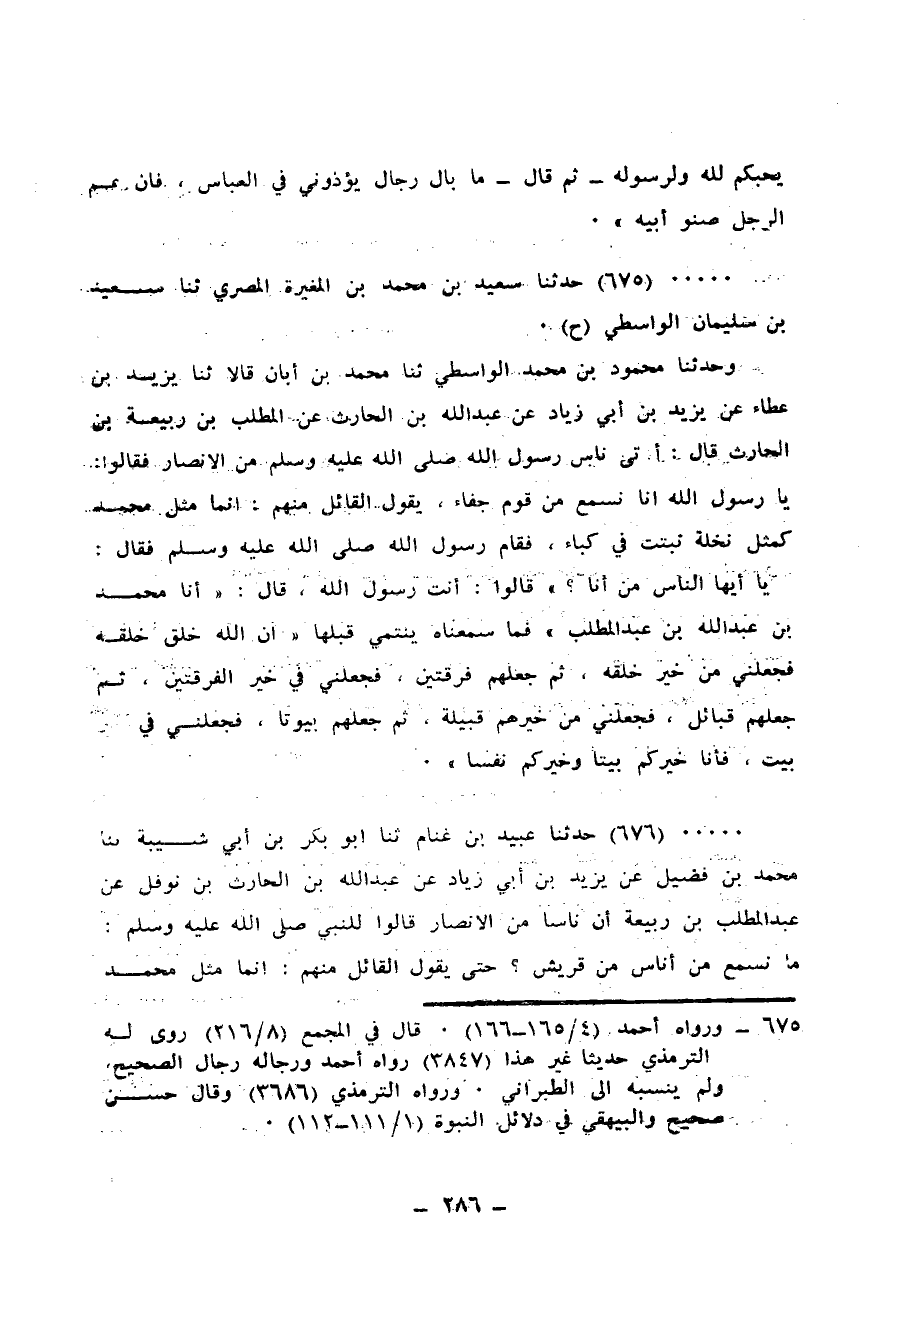 يحبكم لله ولرسوله ــ ثم قال ــ ما بال رجال يؤذوني في العباس ، فان عــم
الرجل صنو أبيه » ٠
٠٠٠٠٠ (٦٧٥) حدثنا سعيد بن محمد بن المغيرة المصري ثنا ســـعيد
بن سليمان الواسطي (ح) ٠
وحدثنا محمود بن محمد الواسطي ثنا محمد بن أبان قالا ثنا يزيـد بن
عطاء عن يزيد بن أبي زياد عن عبدالله بن الحارث عن المطلب بن ربيعـة بن
الحارث قال : أ تى ناس رسول الله صلى الله عليه وسلم من الانصار فقالوا:
يا رسول الله انا نسمع من قوم جفاء ، يقول القائل منهم : انما مثل محمـد
كمثل نخلة نبتت في كباء ، فقام رسول الله صلى الله عليه وســلم فقال :
يا أيها الناس من أنا ؟ » قالوا : أنت رسول الله ، قال : « أنا محمـــد
بن عبدالله بن عبدالمطلب » فما سمعناه ينتمي قبلها « ان الله خلق خلقـه
فجعلني من خير خلقه ، ثم جعلهم فرقتين ، فجعلني في خير الفرقتين ، ثـم
جعلهم قبائل ، فجعلني من خيرهم قبيلة ، ثم جعلهم بيوتا ، فجعلنــي في
بيت ، فأنا خيركم بيتا وخيركم نفسا » ٠
٠٠٠٠٠ (٦٧٦) حدثنا عبيد بن غنام ثنا ابو بكر بن أبي شـــيبة ثنا
محمد بن فضيل عن يزيد بن أبي زياد عن عبدالله بن الحارث بن نوفل عن
عبدالمطلب بن ربيعة أن ناسا من الانصار قالوا للنبي صلى الله عليه وسلم :
ما نسمع من أناس من قريش ؟ حتى يقول القائل منهم : انما مثل محمـــد
٦٧٥ ــ ورواه أحمد (٤/١٦٥ــ١٦٦) ٠ قال في المجمع (٢١٦/٨) روى لـه
الترمذي حديثا غير هذا (٣٨٤٧) رواه أحمد ورجاله رجال الصحيح،
ولم ينسبه الى الطبراني ٠ ورواه الترمذي (٣٦٨٦) وقال حســـن
صحيح والبيهقي في دلائل النبوة (١/١١١ــ١١٢) ٠
ــ ٢٨٦ ــ